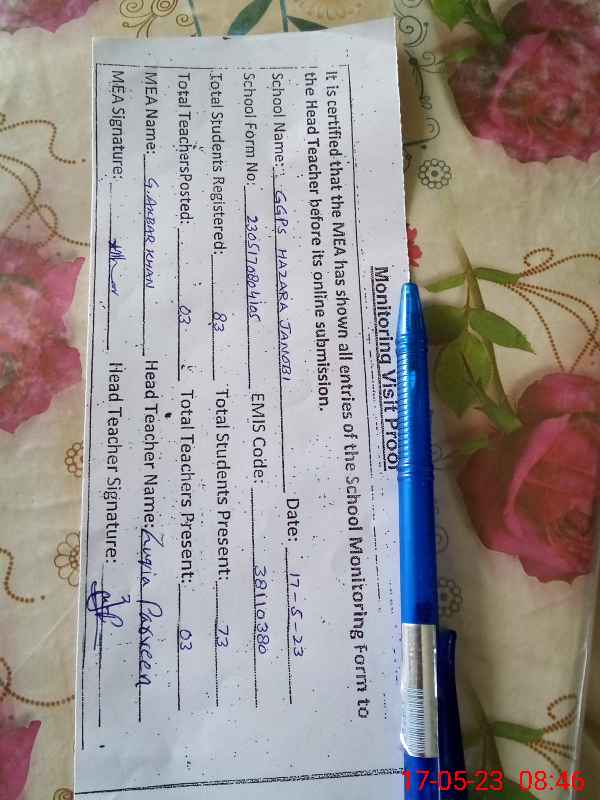 Monitoring Visit Proof
It is certified that the MEA has shown all entries of the School Monitoring Form to
the Head Teacher before its online submission.
School Name: GGPS HAZARA JANOBI Date: 17-5-23
School Form No: 2305170804105 EMIS Code: 38110380
Total Students Registered: 83 Total Students Present: 73
Total TeachersPosted: 03 Total Teachers Present: 03
MEA Name: G.AKBAR KHAN Head Teacher Name: Parveen
MEA Signature: Head Teacher Signature:
17-05-23 08:46